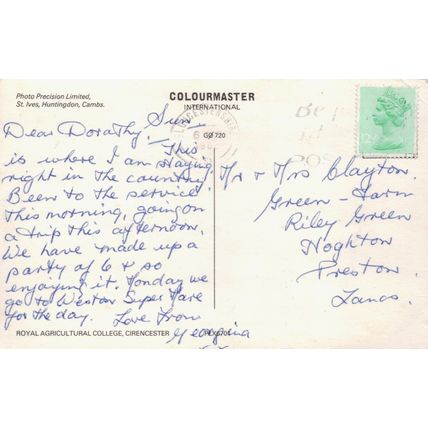 Photo Precision Limited,
St. Ives, Huntingdon, Cambs.
COLOURMASTER
INTERNATIONAL
GØ 720
LEICESTERSHIRE
Dear Dorathy, Sun.
This
is where I am staying
right in the country.
Been to the service
this morning, going on
a trip this afternoon.
We have made up a
party of 6 & so
enjoying it. Monday we
go to Weston Super Mare
for the day. Love from
Georgina
Mr & Mrs Clayton.
Green-Farm
Riley Green
Hoghton
Preston
Lancs.
ROYAL AGRICULTURAL COLLEGE, CIRENCESTER